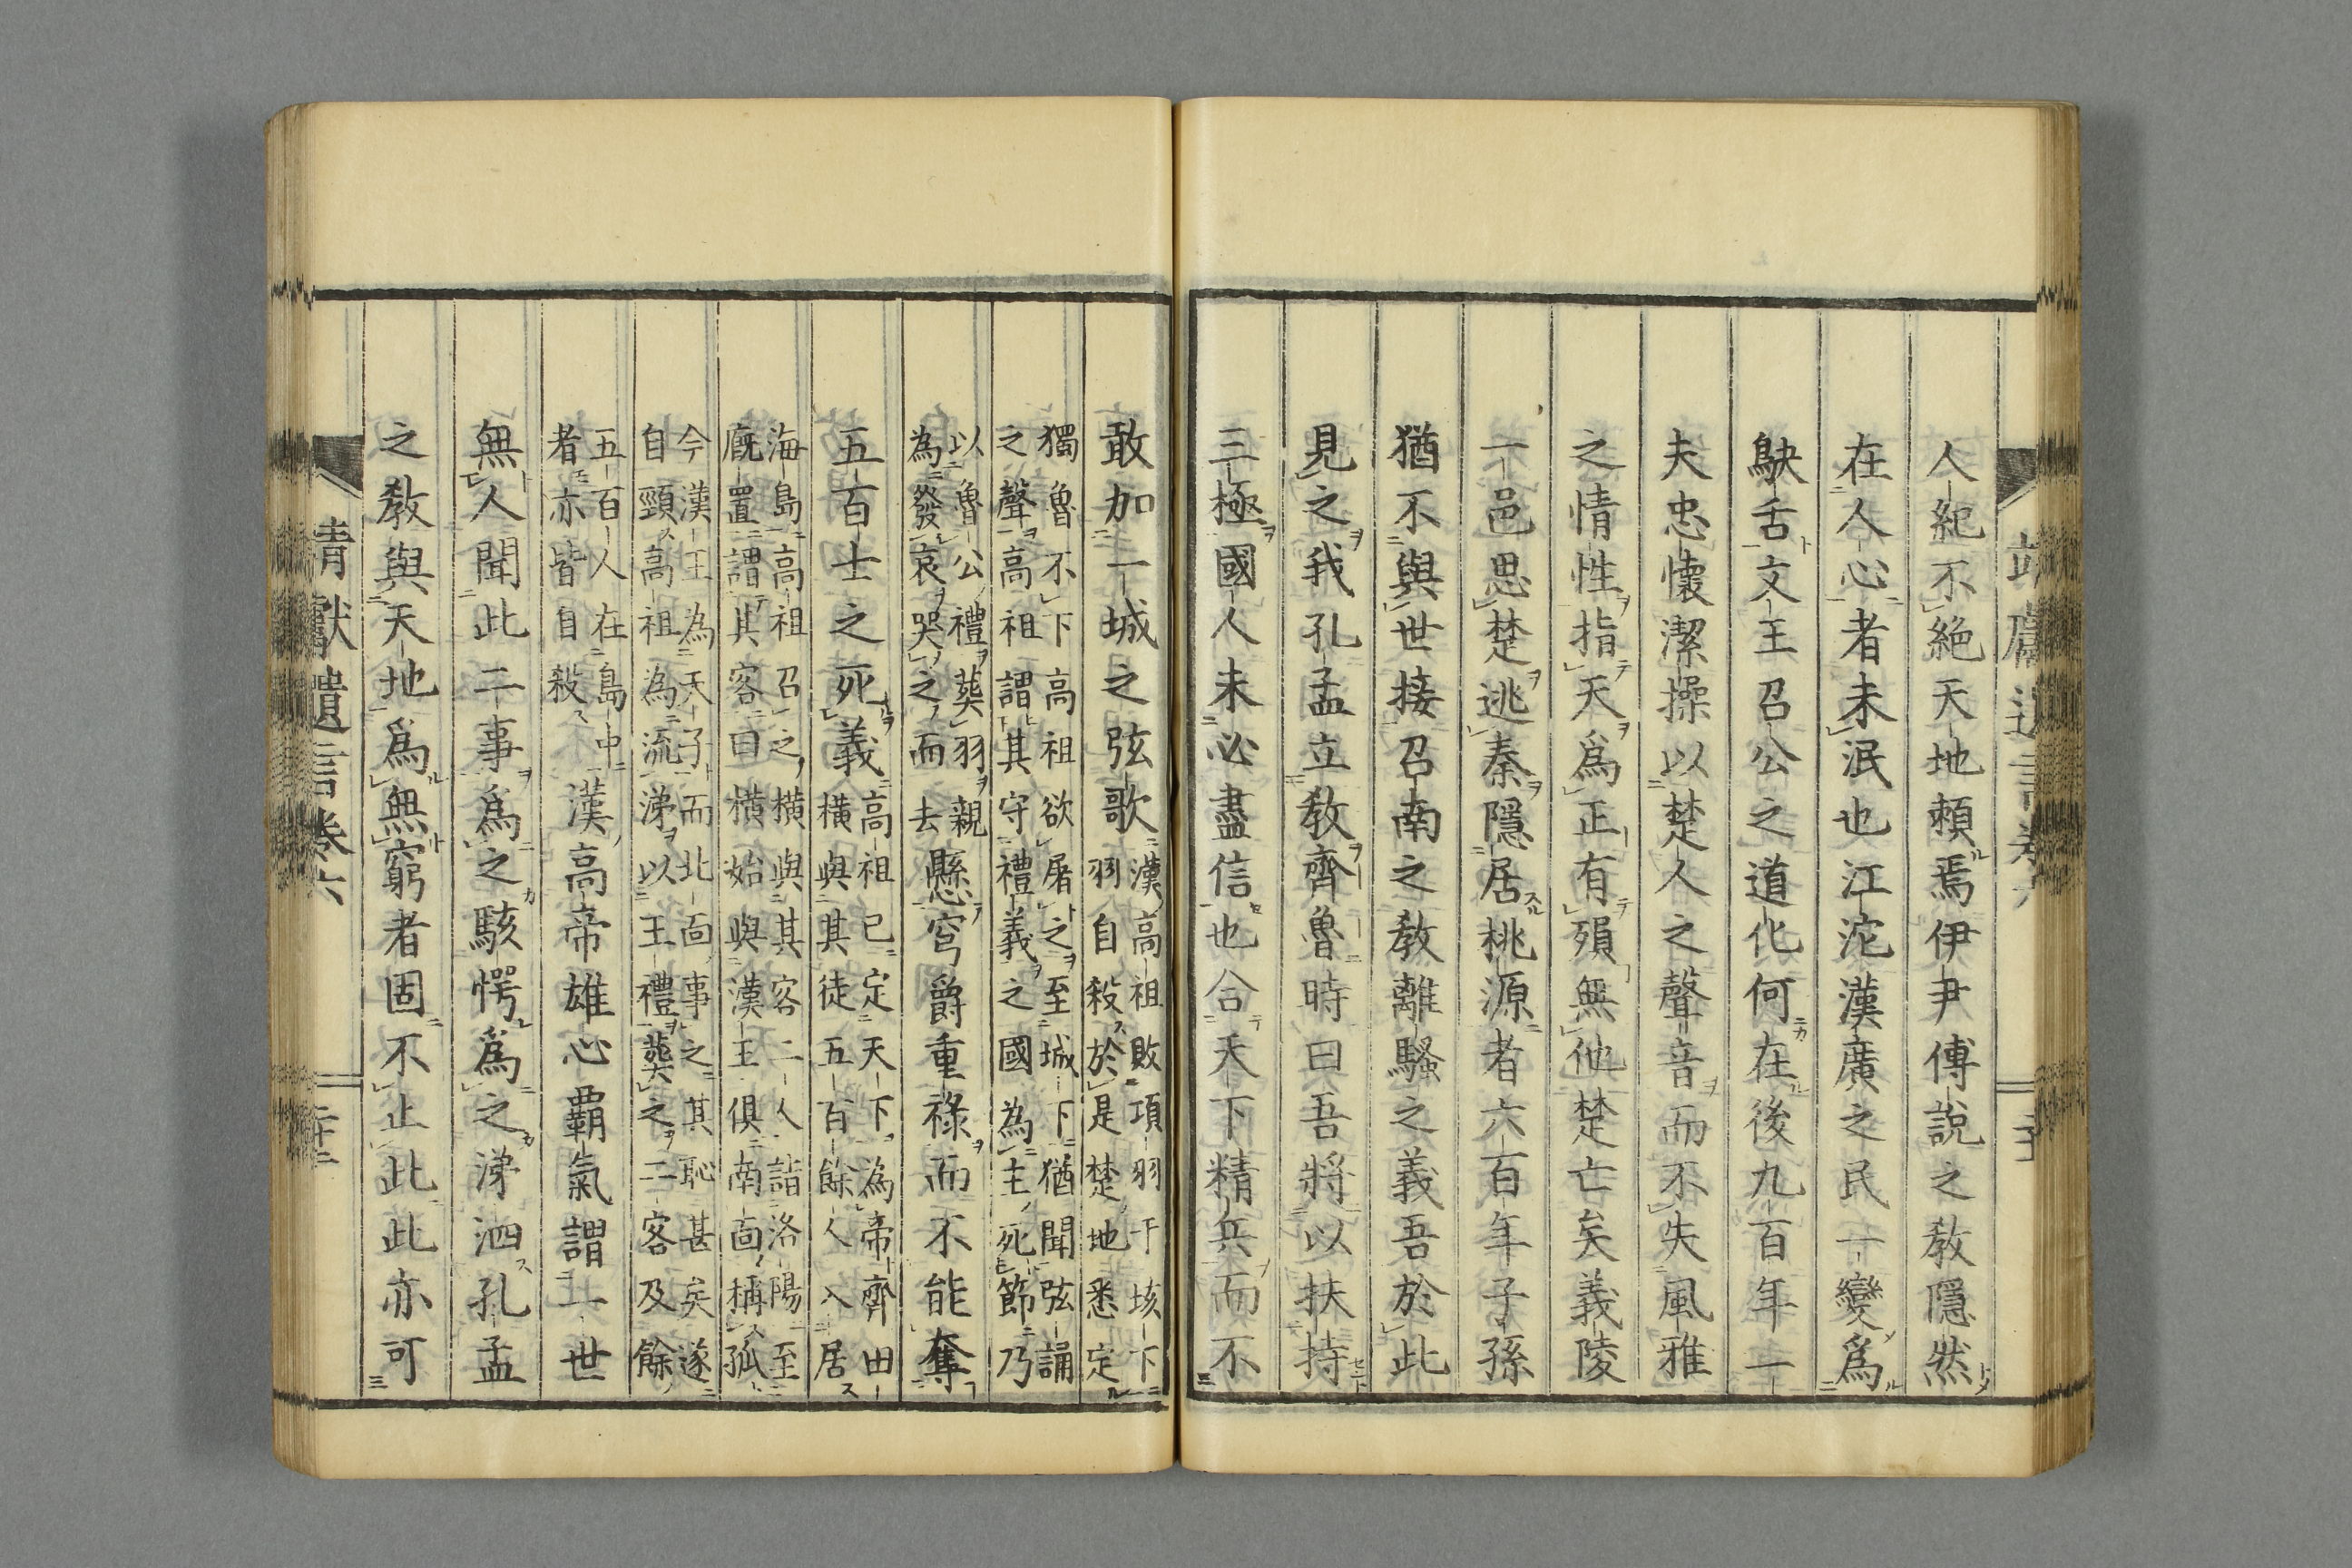 人紀不絕天地賴焉伊尹傅說之敎隱然
在人心者未泯也江沱漢廣之民一變爲
鴃舌文王召公之道化何在後九百年一
夫忠懷潔操以楚人之聲音而不失風雅
之情性指天爲正有殞無他楚亡矣義陵
一邑思楚逃秦隱居桃源者六百年子孫
猶不與世接召南之敎離騷之義吾於此
見之我孔孟立敎齊魯時曰吾將以扶持
三極國人未必盡信也合天下精兵而不
敢加一城之弦歌
漢高祖敗項羽于垓下
羽自殺於是楚地悉定
獨魯不下高祖欲屠之至城下猶聞弦誦
之聲高祖謂其守禮義之國為主死節乃
以魯公禮葬羽親
為發哀哭之而去
懸穹爵重祿而不能奪
五百士之死義
高祖已定天下為帝齊田
橫與其徒五百餘人入居
海島高祖召之橫與其客二人詣洛陽至
廐置謂其客曰橫始與漢王俱南面稱孤
今漢王為天子而北面事之其恥甚矣遂
自頸高祖為流涕以王禮葬之二客及餘
五百人在島中
者亦皆自殺
漢高帝雄心覇氣謂一世
無人聞此二事爲之駭愕爲之涕泗孔孟
之敎與天地爲無窮者固不止此此亦可
靖獻遺言卷六